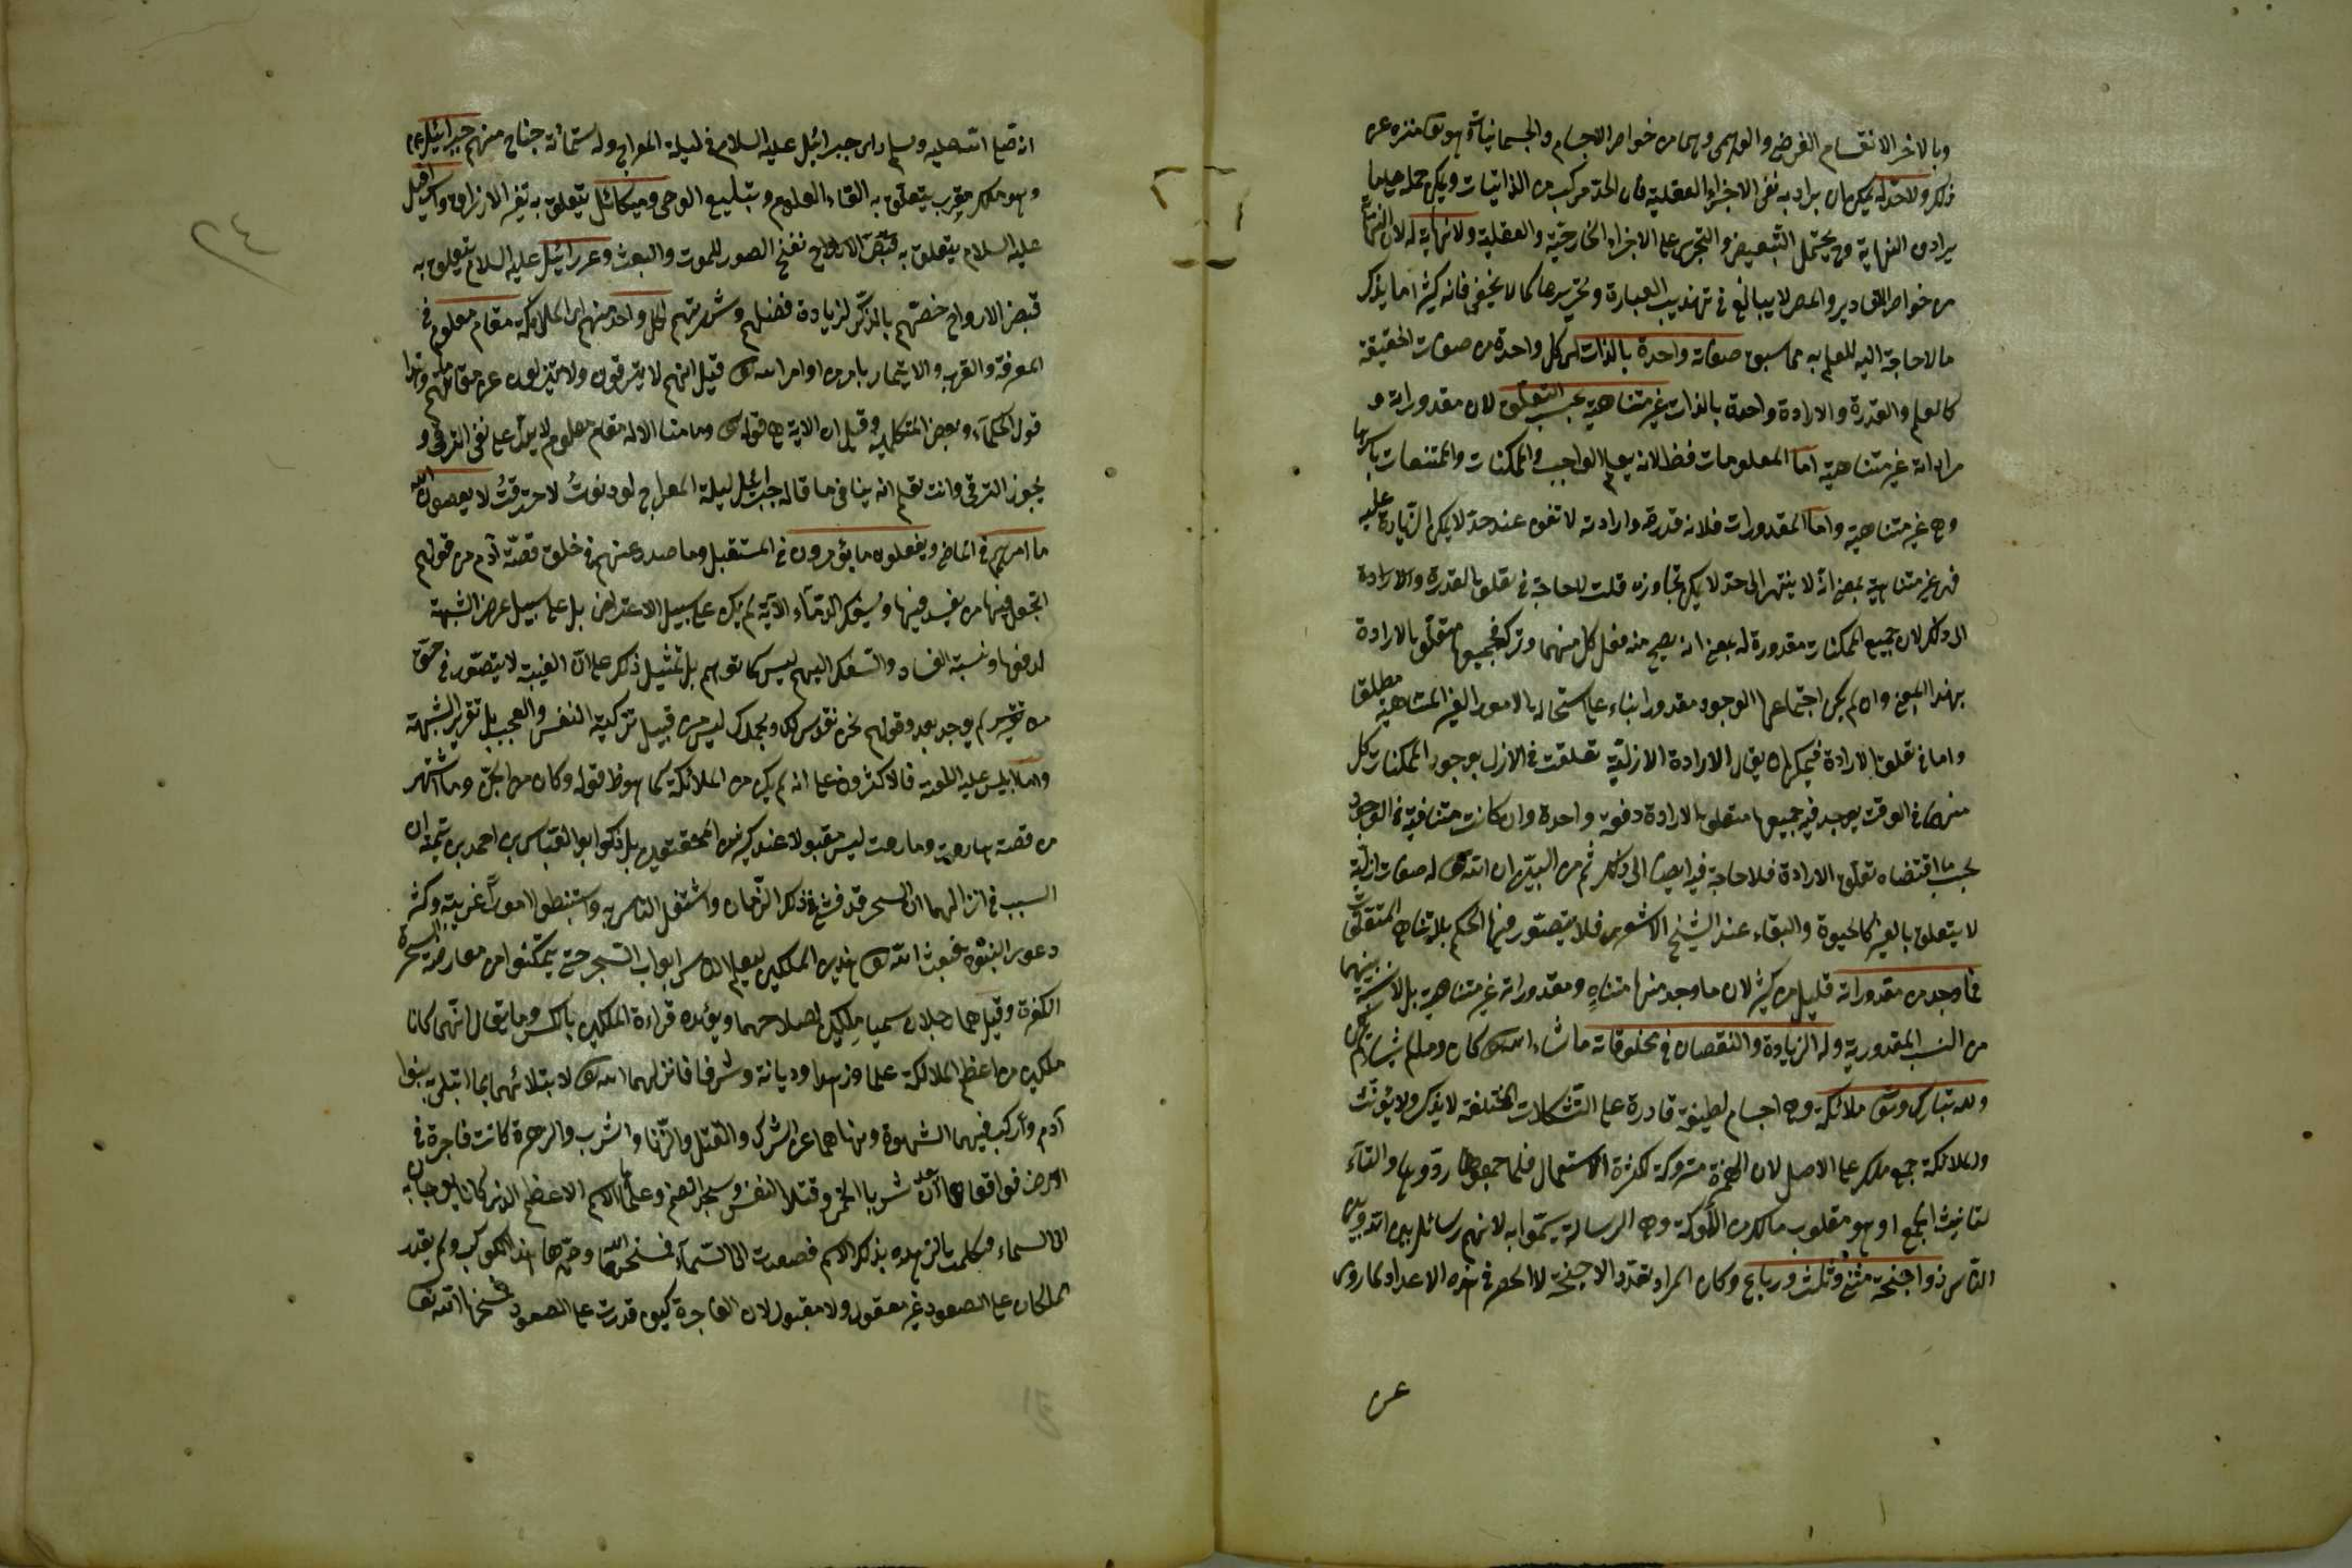 وبالاخر الانقسام الفرضي والوهمي وهما من خواص الاجسام والجسمانيات وهو تعا منزه عن
ذلك ولا حد له يمكن ان يراد به نفي الاجزاء العقلية فان الحد مركب من الذاتيات ويمكن حمله على ما
يرادف النهاية وح يحتمل التبعيض والتجزي على الاجزاء الخارجية والعقلية ولا نهاية له لان النهاية
من خواص المقادير والمص لا يبالغ في تهذيب العبارة وتحريرها كما لا يخفى فانه كثيرا ما يذكر
ما لا حاجة اليه للعلم به مما سبق صفاته واحدة بالذات اي كل واحدة من صفات الحقيقة
كالعلم والقدرة والارادة واحدة بالذات غير متناهية بحسب التعلق لان مقدوراته و
مراداته غير متناهية اما المعلومات فظ لانه يعلم الواجب والممكنات والممتنعات باسرها
وهي غير متناهية واما المقدورات فلان قدرته وارادته لا تقف عند حد لا يمكن الزيادة عليه
فهي غير متناهية بمعنى انه لا ينتهى الى حد لا يمكن تجاوزه قلت لا حاجة في تعلق القدرة والارادة
الى ذلك لان جميع الممكنات مقدورة له بمعنى انه يصح منه فعل كل منهما وتركه فجميعها متعلق بالارادة
بهذا المعنى وان لم يكن اجتماعها الوجود مقدورا بناء على استحالة الامور الغير المتناهية مطلقا
واما في تعلق الارادة فيمكن ان يقال الارادة الازلية تعلقت في الازل بوجود الممكنات كل
منها في الوقت يوجد فيه جميعها متعلق الارادة دفعة واحدة وان كانت متنافية في الوجود
بحسب ما اقتضاه تعلق الارادة فلا حاجة فيه ايضا الى ذلك ثم من البين ان الله تعا له صفات ازلية
لا يتعلق بالغير كالحيوة والبقاء عند الشيخ الاشعري فلا يتصور فيها الحكم بلا تناهي المتعلقات
فما وجد من مقدوراته قليل من كثير لان ما وجد منها متناه ومقدوراته غير متناهية بل لا نسبة بينهما
من النسب المقدورية وله الزيادة والنقصان في مخلوقاته ما شاء الله تعا كان وما لم يشأ لم يكن
ولله تبارك وتعا ملائكة وهي اجسام لطيفة قادرة على التشكلات المختلفة لا يذكر ولا يؤنث
والملائكة جمع ملك على الاصل لان الهمزة متروكة لكثرة الاستعمال فلما جمعوها ردوها والتاء
لتانيث الجمع او هو مقلوب مالك من الالوكة وهي الرسالة سموا به لانهم رسائل بين الله وبين
الناس ذو اجنحة مثنى وثلث ورباع وكان المراد تعدد الاجنحة لا الحصر في هذه الاعداد لما روى
عن
٢٤
انه صلى الله عليه وسلم راى جبرائيل عليه السلام في ليلة المعراج وله ستمائة جناح منهم جبرائيل ع م
وهو ملك مقرب يتعلق به القاء العلوم وتبليغ الوحي وميكائيل يتعلق به الارزاق واسرافيل
عليه السلام يتعلق به نفخ الصور للموت والبعث وعزرائيل عليه السلام يتعلق به
قبض الارواح خصهم بالذكر لزيادة فضلهم وشهرتهم لكل واحد منهم اي الملائكة مقام معلوم في
المعرفة والقرب والايتمار بامر من اوامر الله تعا قيل انهم لا يترقون ولا يتنزلون عن مقاماتهم وهذا
قول الحكماء وبعض المتكلمين وقيل ان الاية هي قوله تعا وما منا الا له مقام معلوم لا يدل على نفي الترقي و
يجوز الترقي وانت تعلم انه ينافي ما قاله جبرائيل ليلة المعراج لو دنوت لاحترقت لا يعصون الله
ما امرهم في الماضي ويفعلون ما يؤمرون في المستقبل وما صدر عنهم في خلق قصة آدم من قولهم
اتجعل فيها من يفسد فيها ويسفك الدماء الآية لم يكن على سبيل الاعتراض بل على سبيل عرض الشبهة
لدفعها ونسبة الفساد والسفك اليهم ليس كما توهم بل تمثيل ذلك على ان الغيبة لا يتصور في حق
من لم يوجد بعد وقولهم نحن نقدس لك وبحمدك ليس من قبيل تزكية النفس والعجب بل تقرير الشبهة
واما ابليس عليه اللعنة فالاكثرون على انه لم يكن من الملائكة كما هو ظ قوله وكان من الجن وما اشتهر
من قصة هاروت وماروت ليس مقبولا عند كثير من المحققين بل ذكر ابو العباس بن احمد بن تيمية ان
السبب في انزالهما ان السحر قد فشى في ذلك الزمان واشتغل الناس به واستنبطوا امورا غريبة وكثر
دعوى النبوة فبعث الله تعا هذين الملكين ليعلما الناس ابواب السحر حتى يتمكنوا من معارضة السحرة
الكفرة وقيل هما رجلان سميا ملكين لصلاحهما ويؤيده قراءة الملكين بالكسر وما يقال انهما كانا
ملكين من اعظم الملائكة علما وزهدا وديانة وشرفا فانزلهما الله تعا لابتلائهما بما ابتلى به بنوا
آدم واركب فيهما الشهوة ونهاهما عن الشرك والقتل والزنا والشرب والزهرة كانت فاجرة في
الارض فواقعاها بعد ان شربا الخمر وقتلا النفس وسجدا للصنم وعلماها الاسم الاعظم الذي كانا يعرجان به
الى السماء فتكلمت الزهرة بذلك الاسم فصعدت الى السماء فمسخها الله هذا الكوكب ولم يقدر
الملكان على الصعود غير معقول ولا مقبول لان الفاجرة كيف قدرت على الصعود فمسخها الله تعا